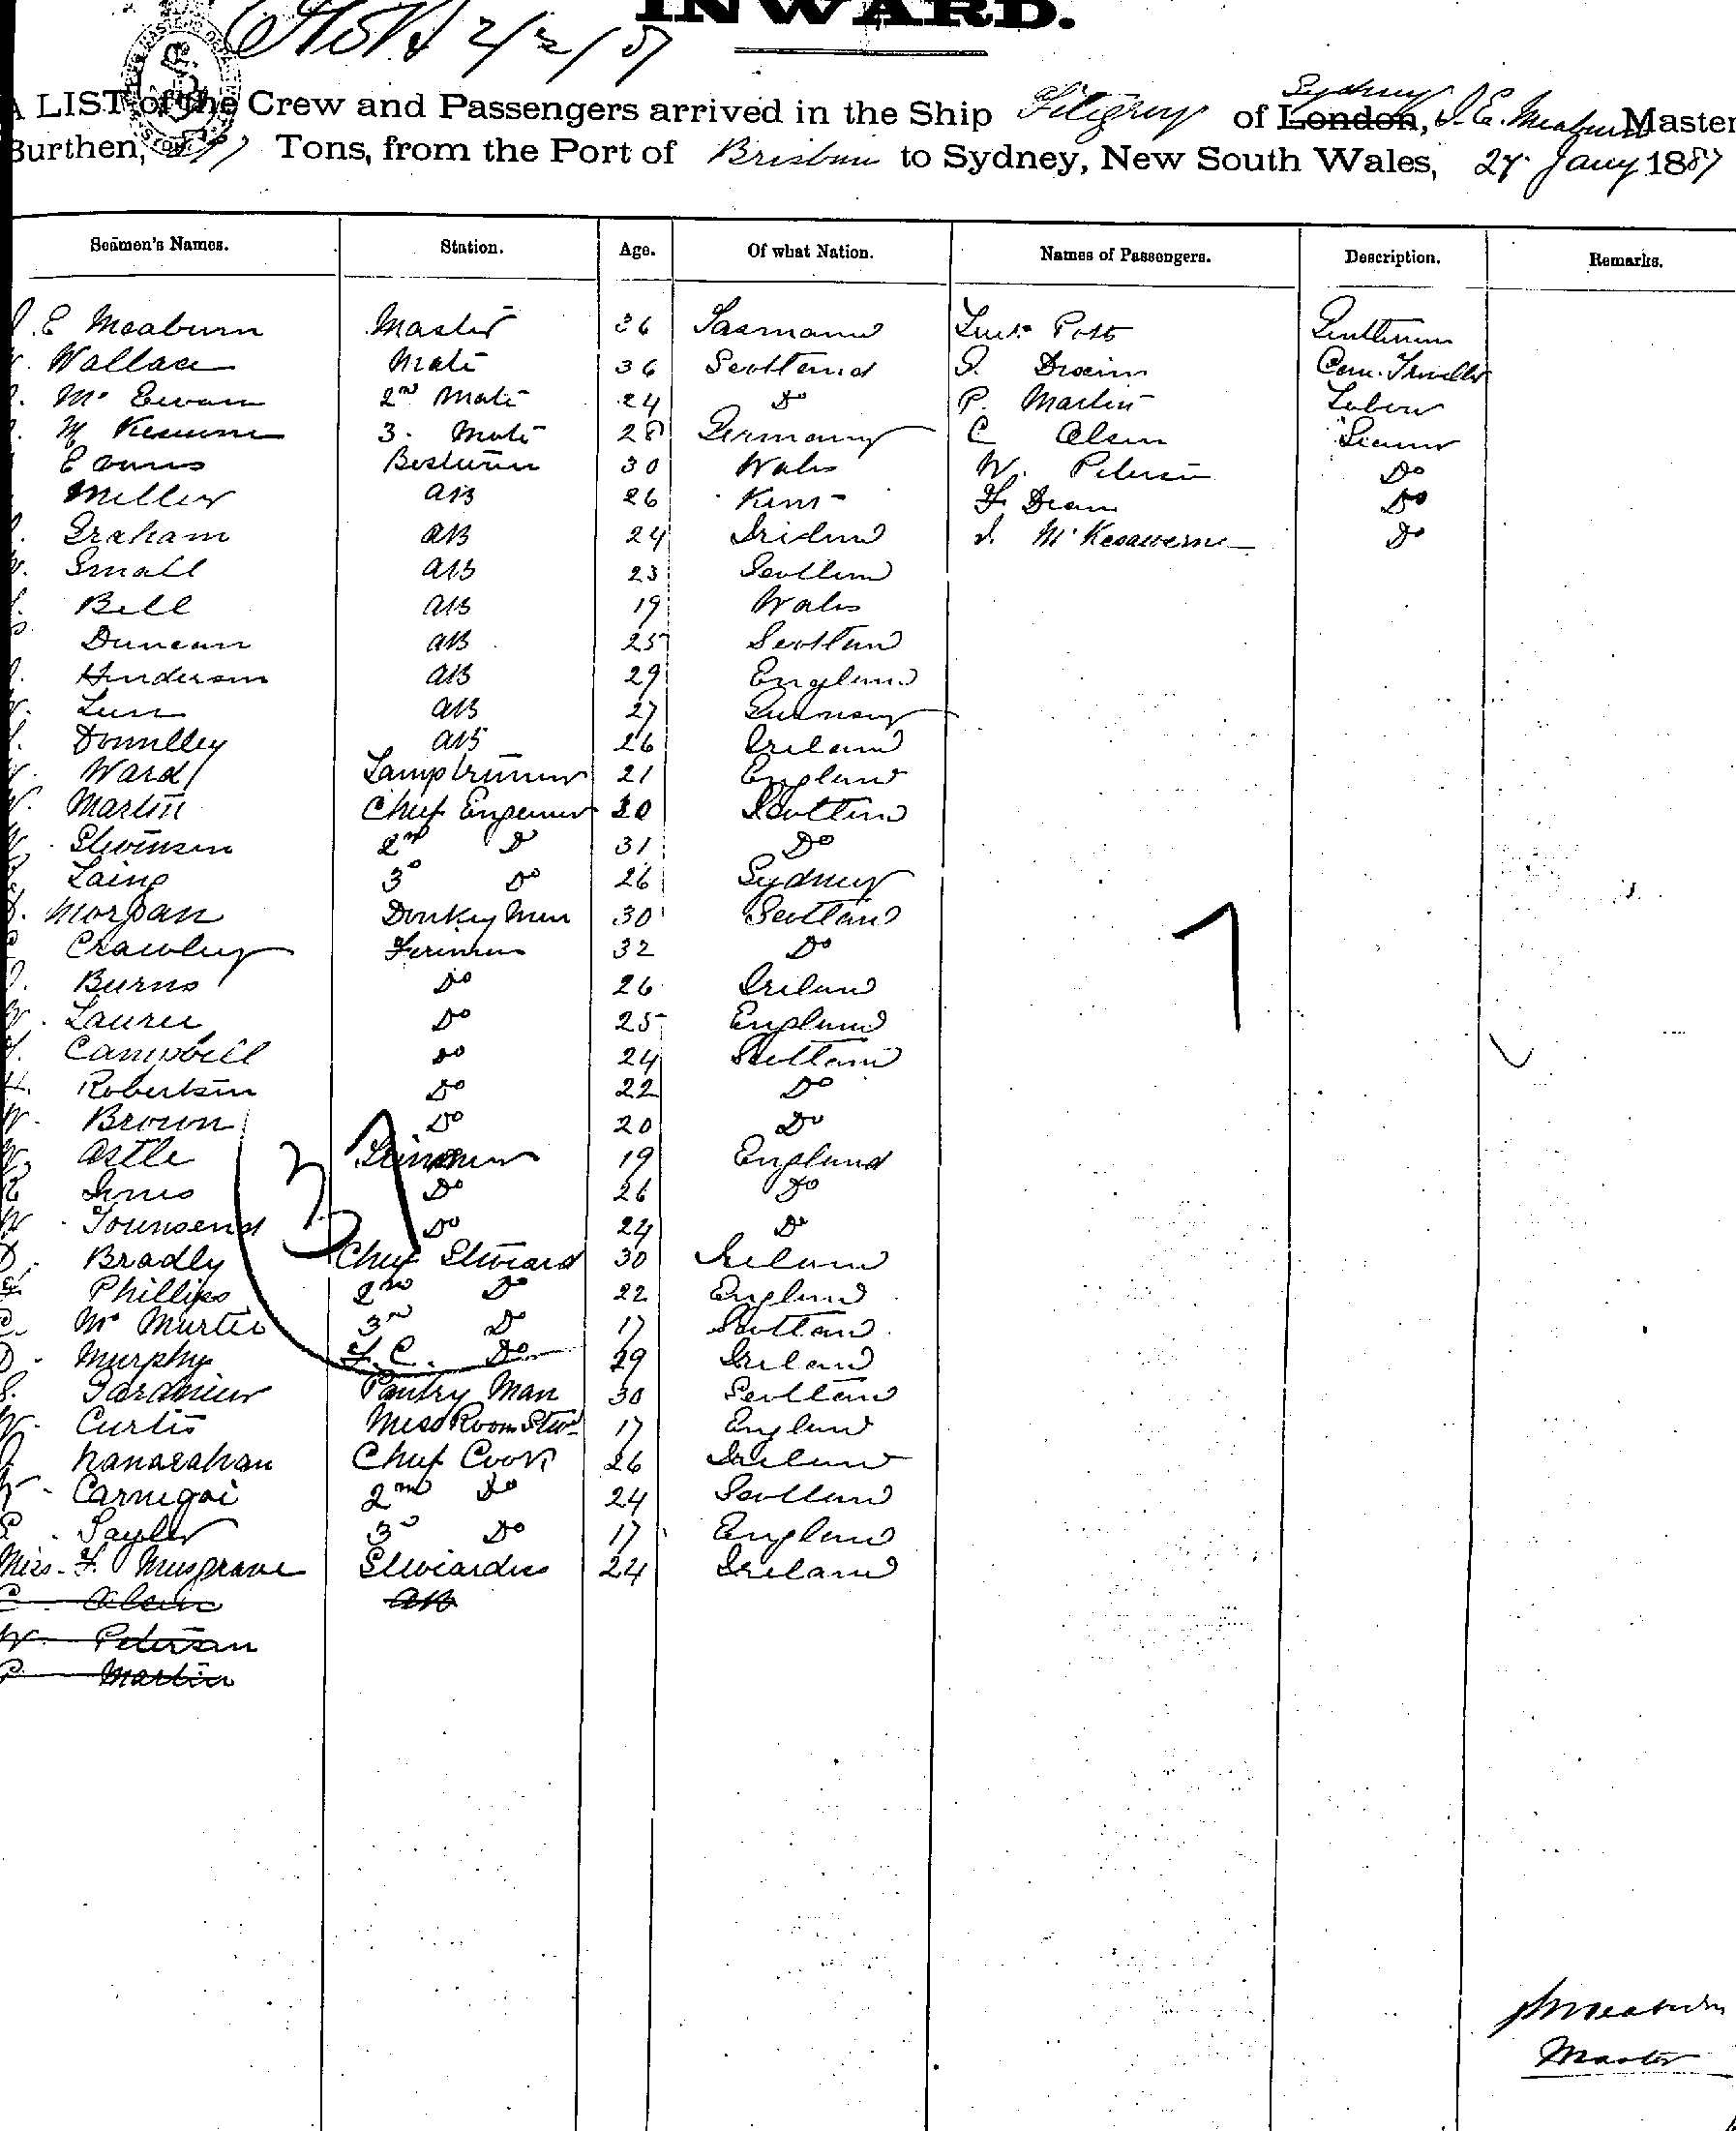 INWARD.
A LIST of the Crew and Passengers arrived in the Ship of London, Sydney J. E. Meaburn Master
Burthen, Tons, from the Port of Brisbane to Sydney, New South Wales, 27 Jany 1887
Seamen's Names. Station. Age. Of what Nation. Names of Passengers. Description. Remarks.
J. E Meaburn Master 36 Tasmania Lieut. Gentleman
Wallace Mate 36 Scotland Com. Traveller
Mc Ewan 2nd Mate 24 Do P. Martin Labour
3. Mate 28 Germany C Olsen
Evans 30 Wales W. Peterson Do
Miller AB 26 Kent F. Do
Graham AB 24 Ireland J. Do
Small AB 23 Scotland
Bell AB 19 Wales
Duncan AB 25 Scotland
Henderson AB 29 England
AB 27 Guernsey
Donnelley AB 26 Ireland
Ward Lamptrimmer 21 England
Martin Chief Engineer 30 Scotland
W. Stevenson 2nd D 31 Do
Laing 3 Do 26 Sydney
Morgan Donkey Man 30 Scotland
Crawley Fireman 32 Do
Burns Do 26 Ireland
W. Laurie Do 25 England
Campbell Do 24 Scotland
H. Robertson Do 22 Do
W. Brown Do 20 Do
Astle Trimmer 19 England
Do 26 Do
W. Townsend Do 24 Do
37
1
D. Bradly Chief Steward 30 Ireland
Phillips 2nd Do 22 England
Mc Murtie 3rd D 17 Scotland
D. Murphy F. C. Do 29 Ireland
Gardiner Pantry Man 30 Scotland
W. Curtis Mess Room Stwd 17 England
Chief Cook 26 Ireland
Carnegai 2nd Do 24 Scotland
Sayler 3rd Do 17 England
Miss. F. Musgrave Stewardess 24 Ireland
C. Olsen AB
W. Peterson
P Martin
Meaburn
Master